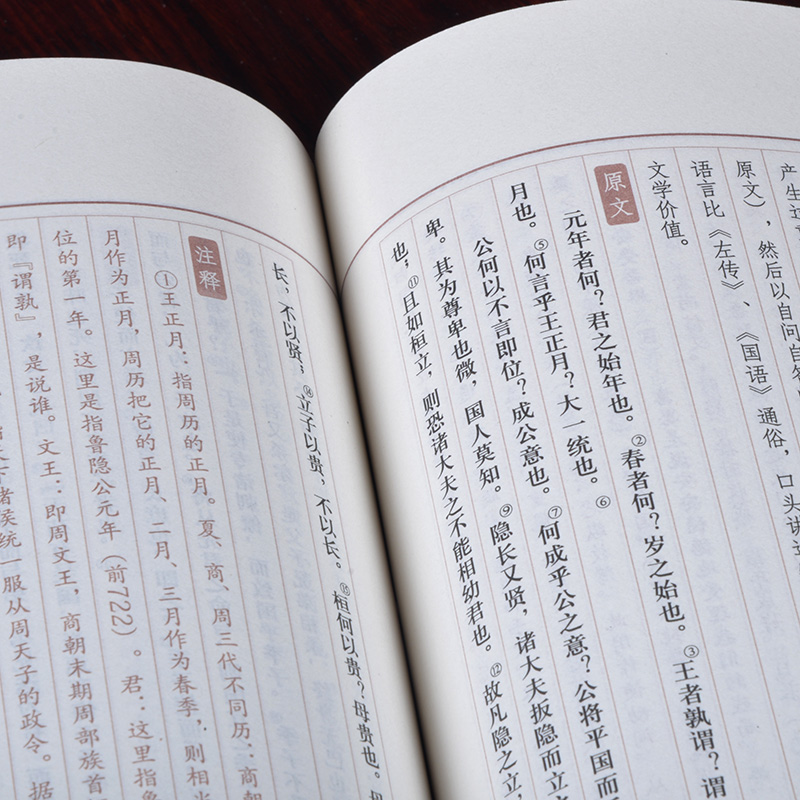 产生过
原文），然后以自问自答
语言比《左传》、《国语》通俗，口头讲述
文学价值。
原文
元年者何？君之始年也。②春者何？岁之始也。③王者孰谓？谓
月也。⑤何言乎王正月？大一统也。⑥
公何以不言即位？成公意也。⑦何成乎公之意？公将平国而
卑。其为尊卑也微，国人莫知。⑨隐长又贤，诸大夫扳隐而立
也；⑪且如桓立，则恐诸大夫之不能相幼君也。⑫故凡隐之立，
长，不以贤；⑭立子以贵，不以长。⑮桓何以贵？母贵也。母
注释
①王正月：指周历的正月。夏、商、周三代不同历：商朝
月作为正月，周历把它的正月、二月、三月作为春季，则相当
位的第一年。这里是指鲁隐公元年（前722）。君：这里指鲁
即『谓孰』，是说谁。文王：即周文王，商朝末期周部族首
诸侯统一服从周天子的政令。据